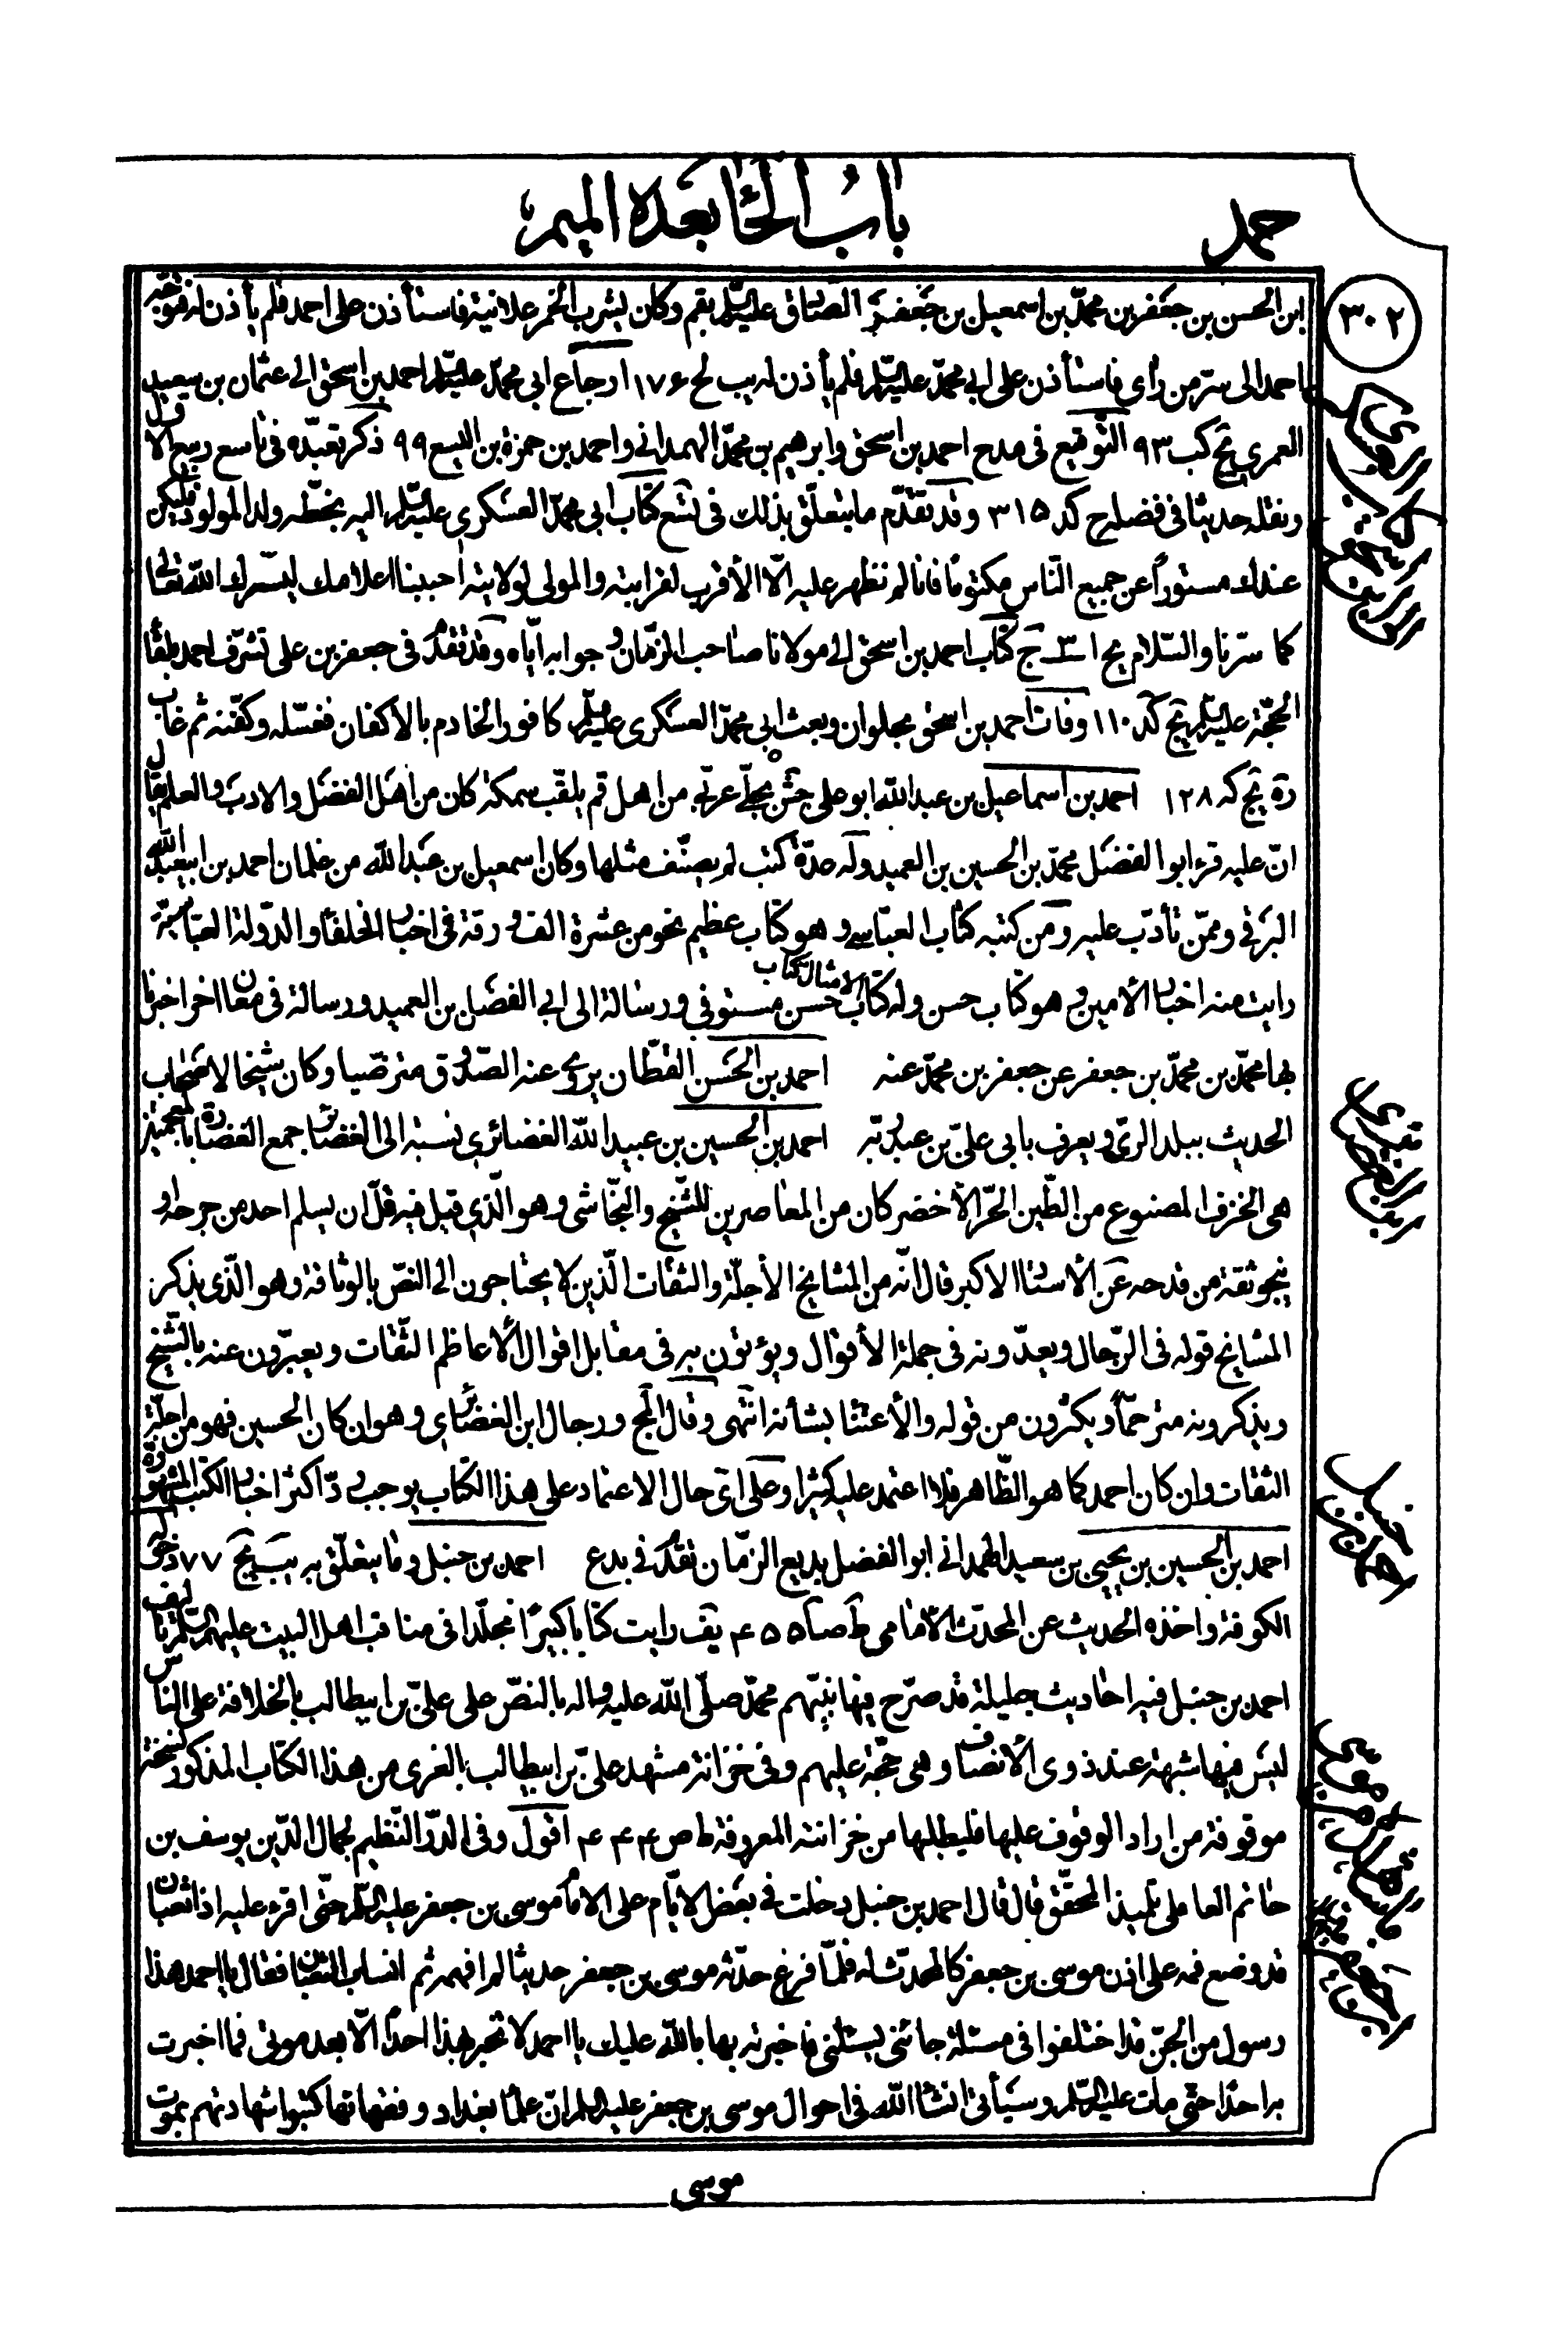 باب الحا بعده الميم
حمد
٣٠٢
ابن الحسن بن جعفر بن محمّد بن اسمعيل بن جعفر الصّادق عليه السّلم بقم وكان يشرب الخمر علانية فاستأذن على احمد فلم يأذن له فتوجّه
احمد الى سرّ من رأى فاستأذن على ابي محمّد عليه السّلم فلم يأذن له يب لح ١٧۶ ارجاع ابي محمّد عليه السّلم احمد بن اسحق الى عثمان بن سعيد
العمري يج كب ٩٣ التّوقيع في مدح احمد بن اسحق وابرهيم بن محمّد الهمداني واحمد بن حمزة بن اليسع ٩٩ ذكر تعبّده في تاسع ربيع الاوّل
ونقله حديثا في فضله ح كد ٣١۵ وقد تقدّم ما يتعلّق بذلك في تسع كتاب ابي محمّد العسكري عليه السّلم اليه بخطّه ولد المولود فليكن
عندك مستوراً عن جميع النّاس مكتوماً فانا لم نظهر عليه الّا الأقرب لقرابته والمولى لولايته احببنا اعلامك ليسّرك الله تعالى
كما سرّنا والسّلام يج ا ٣ ج كتاب احمد بن اسحق الى مولانا صاحب الزّمان وجوابه ايّاه وقد تقدّم في جعفر بن على تشرّف احمد بلقاء
الحجّة عليه السّلم يج كد ١١٠ وفات احمد بن اسحق بحلوان وبعث ابي محمّد العسكري عليه السّلم كافور الخادم بالأكفان فغسّله وكفّنه ثم غاب
ره يج كه ١٢٨ احمد بن اسماعيل بن عبد الله ابو على جش بجلّي عربّي من اهل قم يلقّب سمكة كان من اهل الفضل والادب والعلم يقال
انّ عليه قرء ابو الفضل محمّد بن الحسين بن العميد وله عدّة كتب لم يصنّف مثلها وكان اسمعيل بن عبد الله من غلمان احمد بن ابيعبد الله
البرقي وممّن تأدّب عليه ومن كتبه كتاب العبّاسي وهو كتاب عظيم نحو من عشرة الف ورقة في اخبار الخلفاء والدّولة العبّاسيّة
رايت منه اخبار الأمين وهو كتاب حسن وله كتاب الامثال كتاب حسن مستوفي ورسالة الى ابي الفضل بن العميد ورسالة في معان اخر اخبرنا
بها محمّد بن محمّد بن جعفر عن جعفر بن محمّد عنه احمد بن الحسن القطّان يروي عنه الصّدوق مترضّيا وكان شيخا لاصحاب
الحديث ببلد الرىّ ويعرف بابي علىّ بن عبد ربّه احمد بن الحسين بن عبيد الله الغضائري نسبة الى الغضائر جمع الغضارة بالمعجمتين
هى الخزف المصنوع من الطّين الحرّ الأخضر كان من المعاصرين للشّيخ والنّجاشي وهو الّذي قيل فيه قلّ ان يسلم احد من جرحه او
ينجو ثقة من قدحه عن الأستاد الاكبر قال انّه من المشايخ الأجلّة والثقات الّذين لا يحتاجون الى النصّ بالوثاقة وهو الّذي يذكر
المشايخ قوله في الرّجال ويعدّونه في جملة الأقوال ويؤتون به في مقابل اقوال الأعاظم الثّقات ويعبّرون عنه بالشّيخ
ويذكرونه مترحّماً ويكثرون من قوله والأعتناء بشأنه انتهى وقال المج ورجال ابن الغضائري وهو ان كان الحسين فهو من اجلّة
الثقات وان كان احمد كما هو الظّاهر فلا اعتمد عليه كثيرا وعلى اىّ حال الاعتماد على هذا الكتاب يوجب ردّ اكثر اخبار الكتب المشهورة
احمد بن الحسين بن يحيى بن سعيد الهمداني ابو الفضل بديع الزّمان تقدّم في بدع احمد بن حنبل وما يتعلّق به يب يج ٧٧ دخوله
الكوفة واخذه الحديث عن المحدّث الأمامي ط صا ۴۵۵ يف رايت كتابا كبيراً مجلّدا في مناقب اهل البيت عليهم السّلم تاليف
احمد بن حنبل فيه احاديث جليلة قد صرّح فيها نبيّهم محمّد صلّى الله عليه واله بالنصّ على علىّ بن ابيطالب بالخلافة على النّاس
ليس فيها شبهة عند ذوى الأنصاف وهى حجّة عليهم وفى خزانة مشهد علىّ بن ابيطالب بالغرى من هذا الكتاب المذكور نسخة
موقوفة من اراد الوقوف عليها فليطلبها من خزانته المعروفة ط ص ۴۴۴ اقول وفى الدرّ النّظيم لجمال الدّين يوسف بن
حاتم العاملى تلميذ المحقّق قال قال احمد بن حنبل دخلت في بعض الايّام على الامام موسى بن جعفر عليه السّلم حتّى اقرء عليه اذا ثعبان
قد وضع فمه على اذن موسى بن جعفر كالمحدّث له فلمّا فرغ حدّثه موسى بن جعفر حديثا لم افهمه ثم انساب الثعبان فقال يا احمد هذا
رسول من الجنّ قد اختلفوا في مسئلة جائنى يسئلنى فاخبرته بها بالله عليك يا احمد لا تخبر بهذا احداً الّا بعد موتي فما اخبرت
به احدا حتّى مات عليه السّلم وسيأتي انشاء الله في احوال موسى بن جعفر عليه السلم انّ علماء بغداد وفقهائها كتبوا شهادتهم بموت
موسى